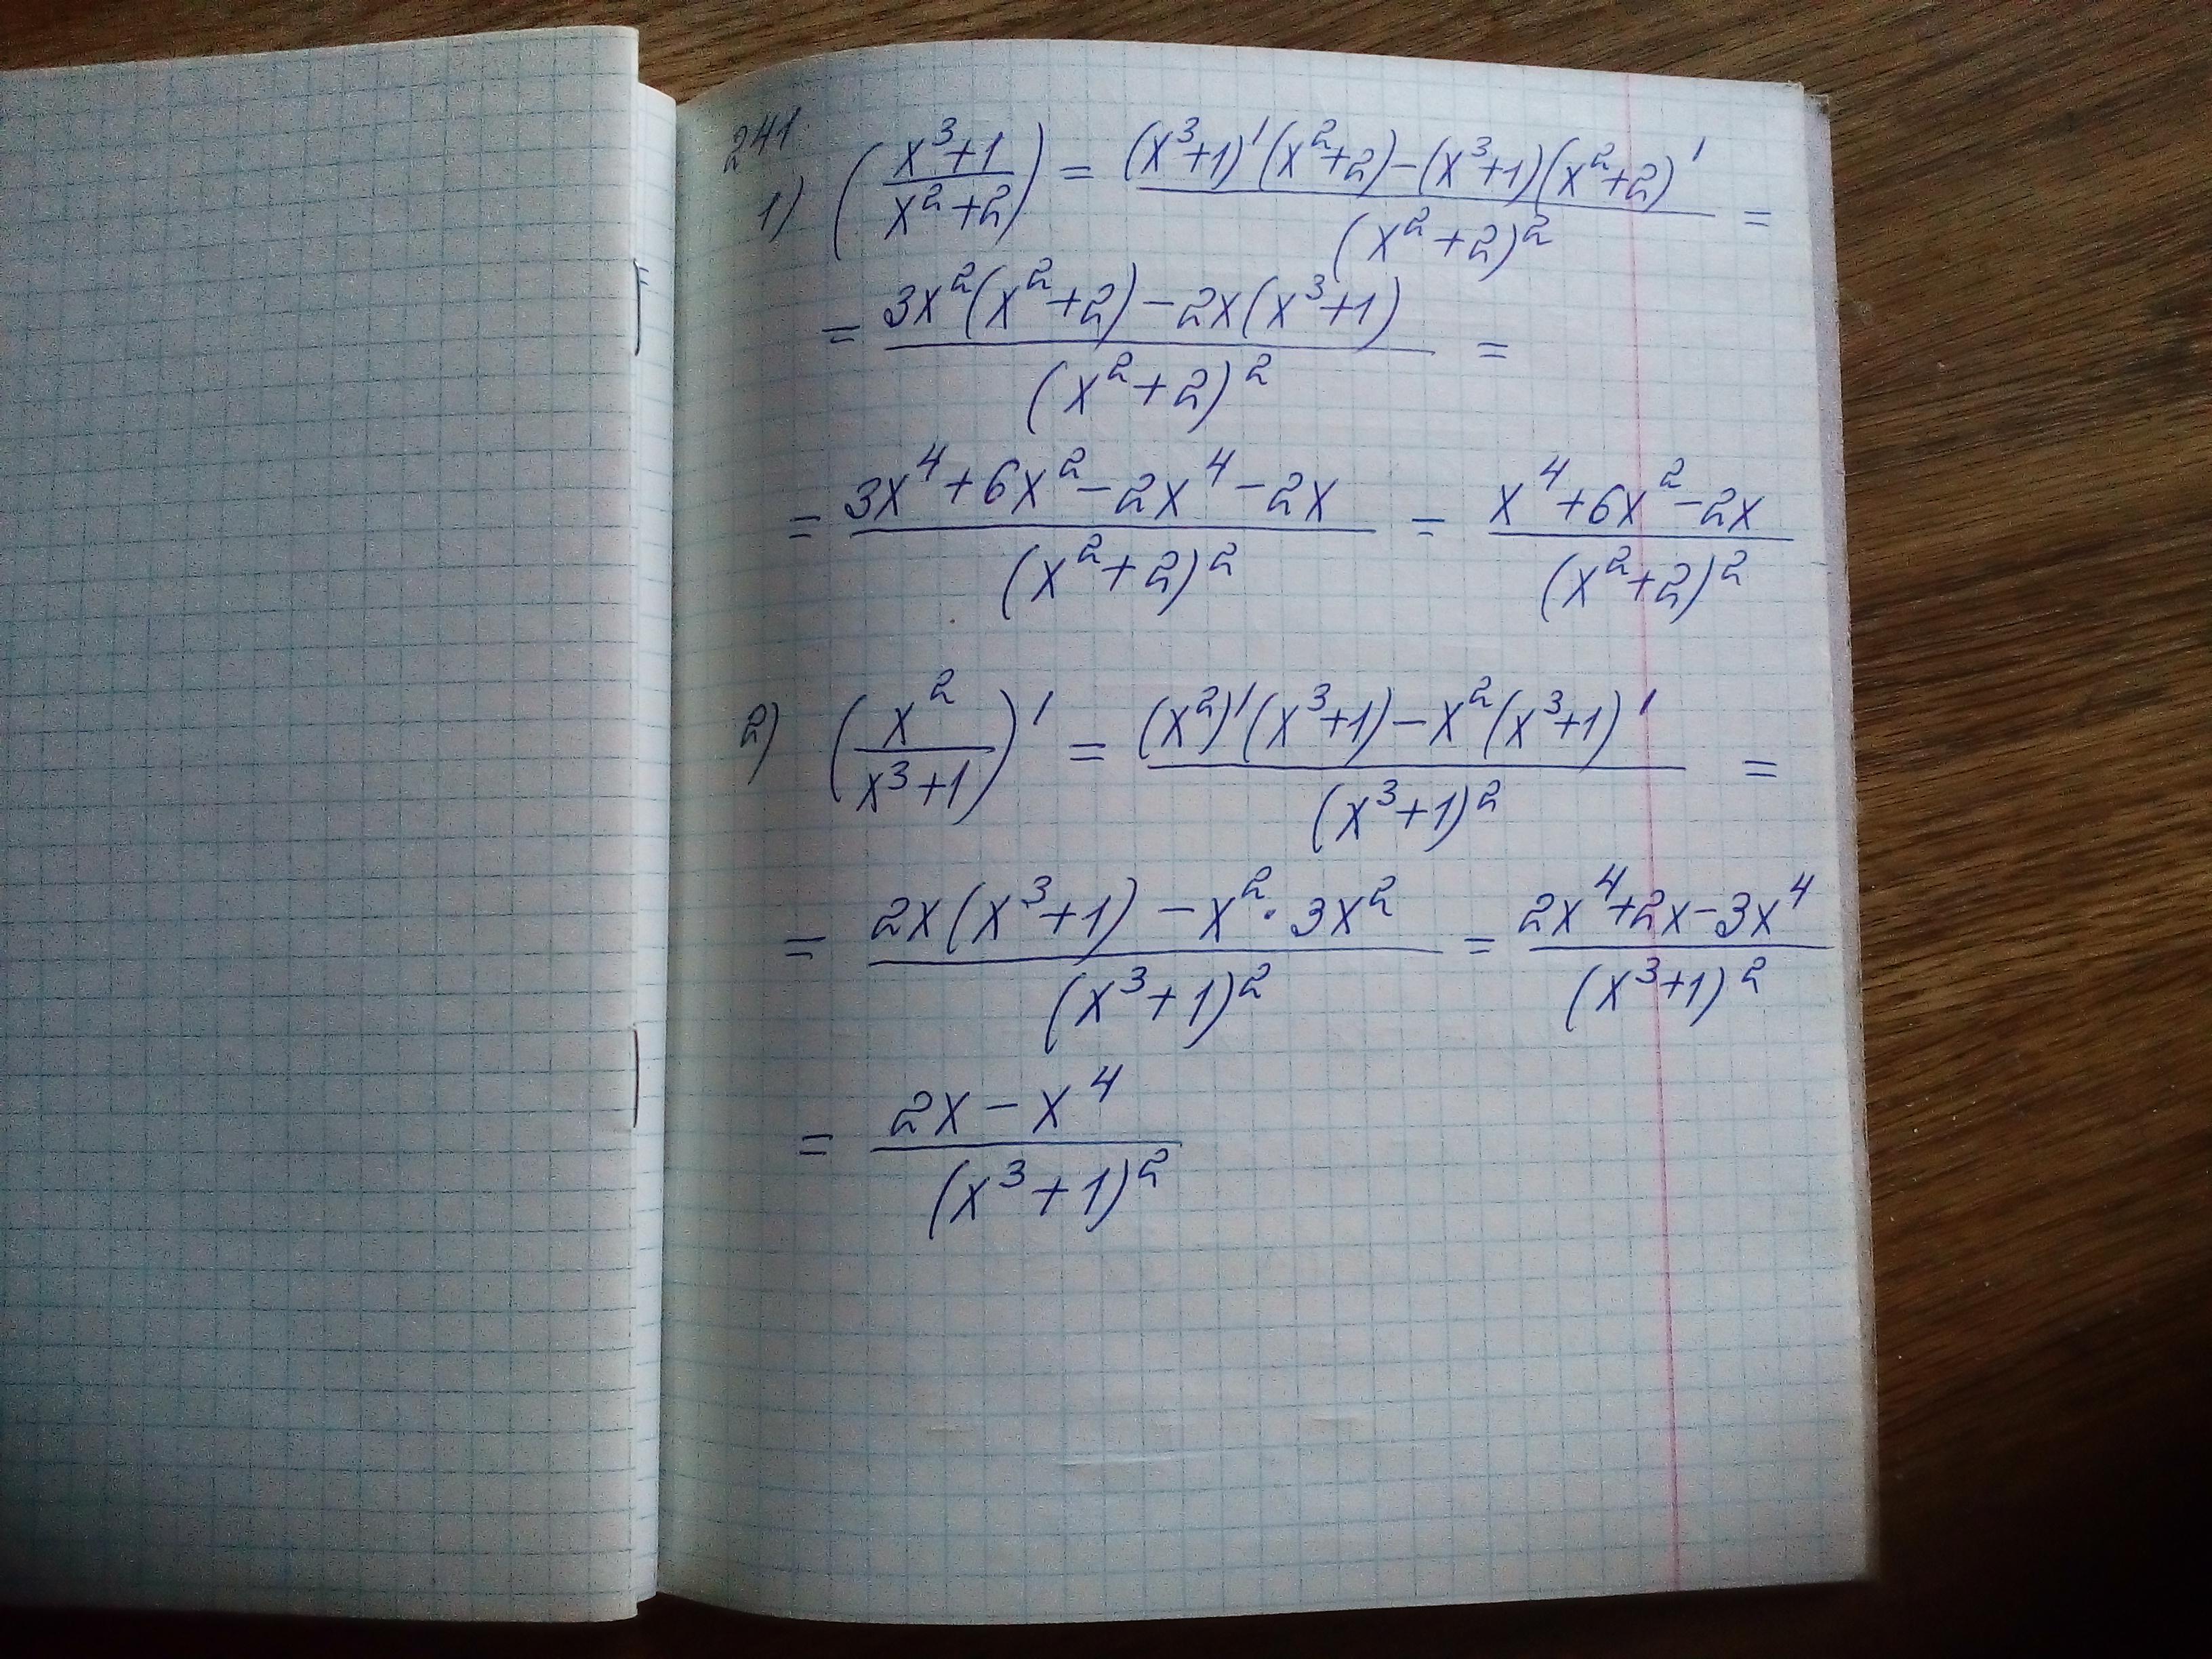 241
1) ((x³+1)/(x²+2)) = ((x³+1)'(x²+2)-(x³+1)(x²+2)')/((x²+2)²) =
= (3x²(x²+2)-2x(x³+1))/((x²+2)²) =
= (3x⁴+6x²-2x⁴-2x)/((x²+2)²) = (x⁴+6x²-2x)/((x²+2)²)
2) (x²/(x³+1))' = ((x²)'(x³+1)-x²(x³+1)')/((x³+1)²) =
= (2x(x³+1)-x²·3x²)/((x³+1)²) = (2x⁴+2x-3x⁴)/((x³+1)²)
= (2x-x⁴)/((x³+1)²)